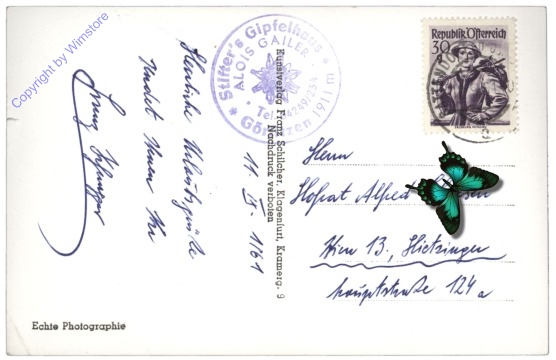 Copyright by Wimstore
Stifter's Gipfelhaus
ALOIS GAILER
Tel.
Görlitzen 1911 m
Republik Österreich
30
Herzliche Urlaubsgrüße
sendet Ihnen Ihr
11. IX. 1961
Kunstverlag Franz Schilcher, Klagenfurt, Kramerg. 9
Nachdruck verboten
Herrn
Hofrat Alfred
Wien 13., Hietzinger
hauptstraße 124a
Echte Photographie